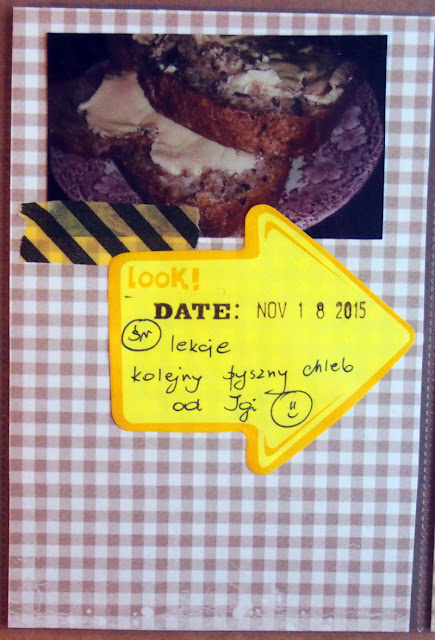 LOOK!
DATE: NOV 1 8 2015
śr lekcje
kolejny pyszny chleb
od Igi